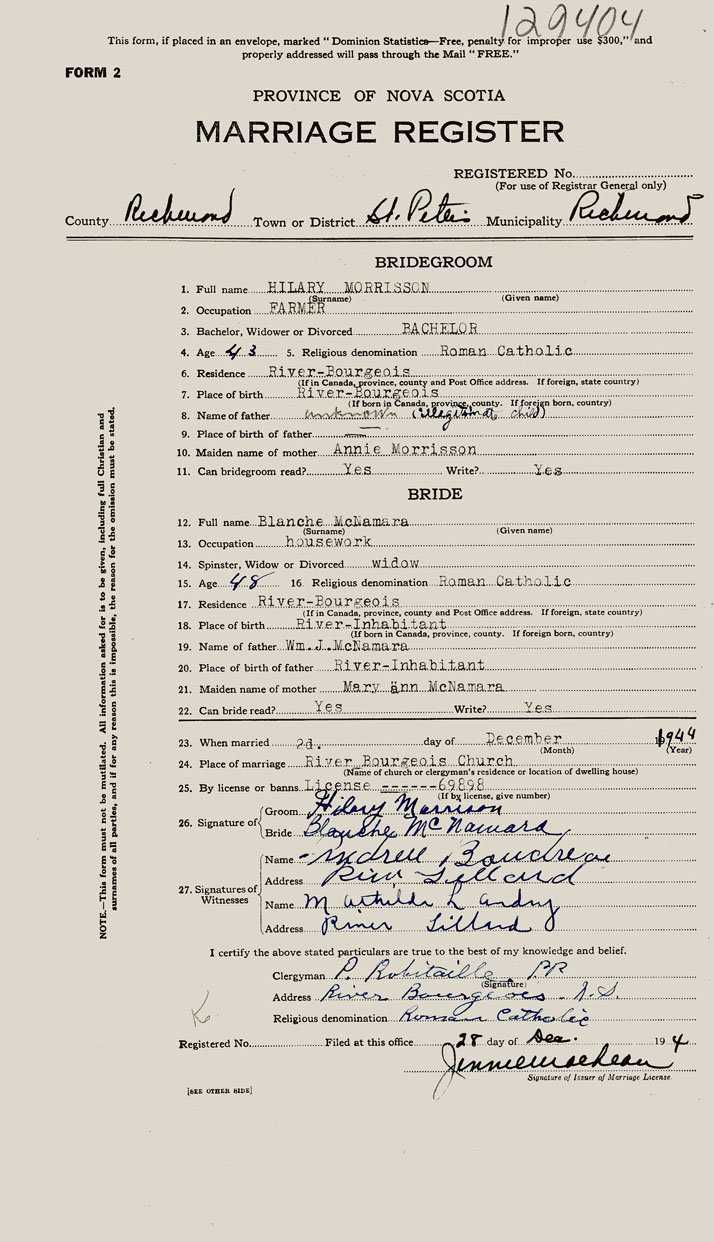 129404
This form, if placed in an envelope, marked "Dominion Statistics—Free, penalty for improper use $300," and
properly addressed will pass through the Mail "FREE."
FORM 2
PROVINCE OF NOVA SCOTIA
MARRIAGE REGISTER
REGISTERED No.
(For use of Registrar General only)
County Richmond Town or District St. Peters Municipality Richmond
BRIDEGROOM
1. Full name HILARY MORRISSON
(Surname) (Given name)
2. Occupation FARMER
3. Bachelor, Widower or Divorced BACHELOR
4. Age 43 5. Religious denomination Roman Catholic
6. Residence River-Bourgeois
(If in Canada, province, county and Post Office address. If foreign, state country)
7. Place of birth River-Bourgeois
(If born in Canada, province, county. If foreign born, country)
8. Name of father unknown (illegitimate child)
9. Place of birth of father —
10. Maiden name of mother Annie Morrisson
11. Can bridegroom read? Yes Write? Yes
BRIDE
12. Full name Blanche McNamara
(Surname) (Given name)
13. Occupation housework
14. Spinster, Widow or Divorced widow
15. Age 48 16. Religious denomination Roman Catholic
17. Residence River-Bourgeois
(If in Canada, province, county and Post Office address. If foreign, state country)
18. Place of birth River-Inhabitant
(If born in Canada, province, county. If foreign born, country)
19. Name of father Wm.J.McNamara
20. Place of birth of father River-Inhabitant
21. Maiden name of mother Mary Ann McNamara
22. Can bride read? Yes Write? Yes
23. When married 2d. day of December 1944
(Month) (Year)
24. Place of marriage River Bourgeois Church
(Name of church or clergyman's residence or location of dwelling house)
25. By license or banns License ------69898
(If by license, give number)
26. Signature of Groom Hilary Morrison
Bride Blanche McNamara
27. Signatures of Witnesses
Name Andrew Boudreau
Address River Tillard
Name Mathilda Landry
Address River Tillard
I certify the above stated particulars are true to the best of my knowledge and belief.
Clergyman P. Robitaille PP
(Signature)
Address River Bourgeois N.S.
Religious denomination Roman Catholic
Registered No. Filed at this office 28 day of Dec. 194 4
Signature of Issuer of Marriage License.
[SEE OTHER SIDE]
NOTE.—This form must not be mutilated. All information asked for is to be given, including full Christian and
surnames of all parties, and if for any reason this is impossible, the reason for the omission must be stated.